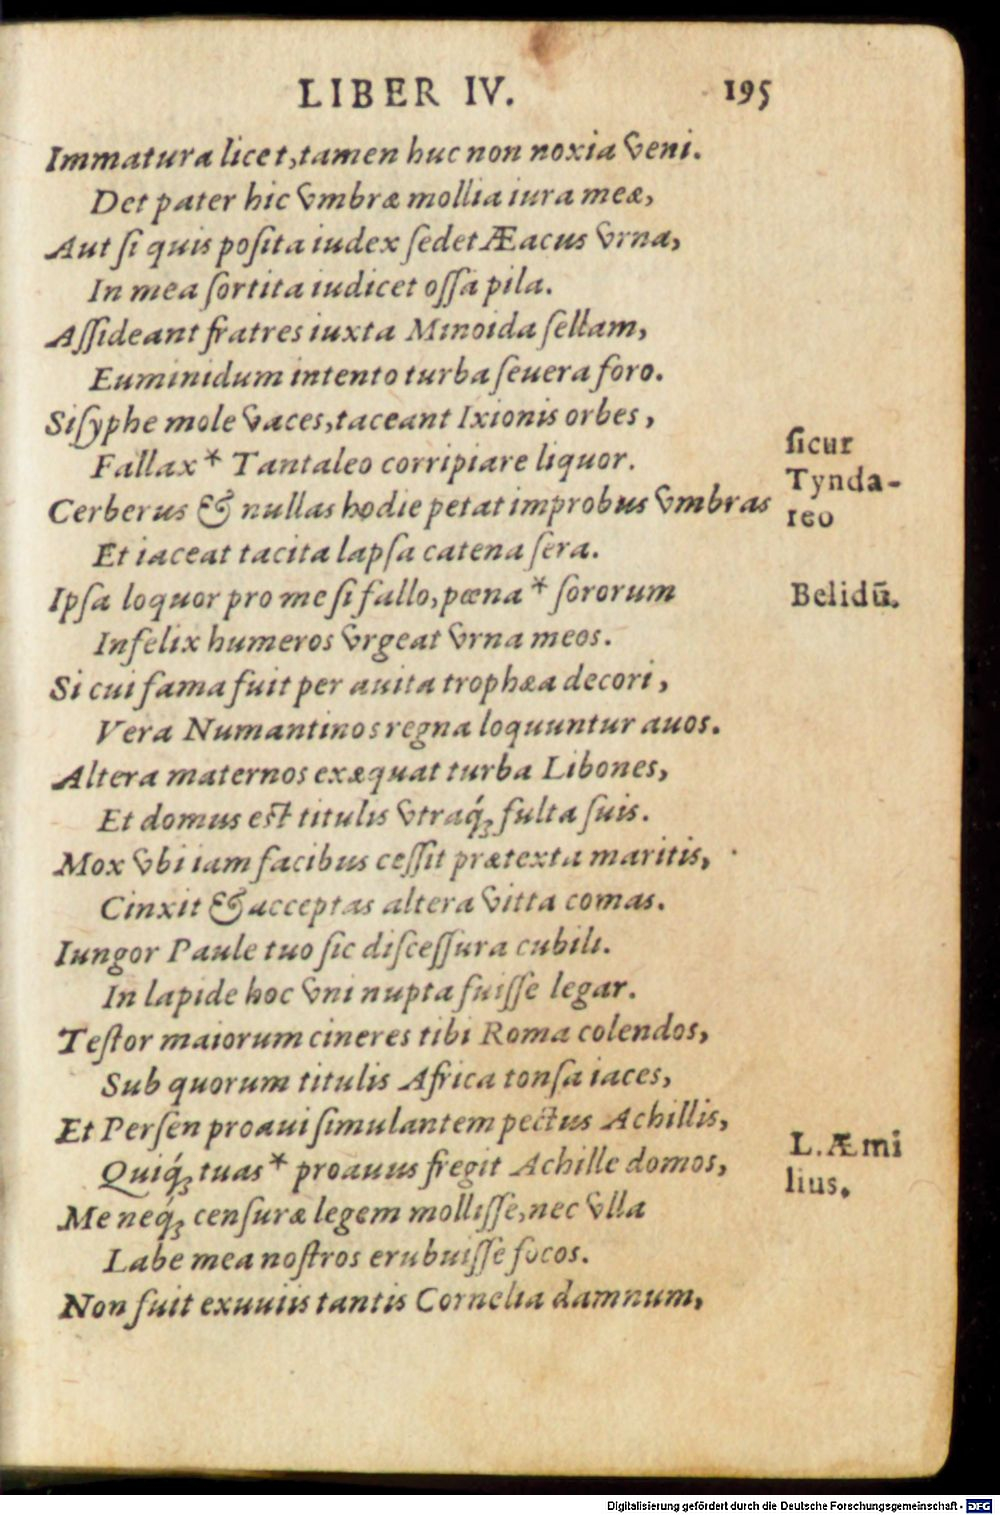 LIBER IV. 195
Immatura licet, tamen huc non noxia veni.
Det pater hic vmbræ mollia iura meæ,
Aut ſi quis poſita iudex ſedet Æacus vrna,
In mea ſortita iudicet oſſa pila.
Aſſideant fratres iuxta Minoida ſellam,
Euminidum intento turba ſeuera foro.
Siſyphe mole vaces, taceant Ixionis orbes,
Fallax * Tantaleo corripiare liquor.
ſicut
Tynda-
reo
Cerberus & nullas hodie petat improbus vmbras
Et iaceat tacita lapſa catena ſera.
Ipſa loquor pro me ſi fallo, pœna * ſororum
Belidū.
Infelix humeros vrgeat vrna meos.
Si cui fama fuit per auita trophæa decori,
Vera Numantinos regna loquuntur auos.
Altera maternos exæquat turba Libones,
Et domus est titulis vtraq́; fulta ſuis.
Mox vbi iam facibus ceſſit prætexta maritis,
Cinxit & acceptas altera vitta comas.
Iungor Paule tuo ſic diſceſſura cubili.
In lapide hoc vni nupta fuiſſe legar.
Teſtor maiorum cineres tibi Roma colendos,
Sub quorum titulis Africa tonſa iaces,
Et Perſen proaui ſimulantem pectus Achillis,
Quiq́; tuas * proauus fregit Achille domos,
L. Æmi
lius.
Me neq́; cenſuræ legem molliſſe, nec vlla
Labe mea noſtros erubuiſſe focos.
Non fuit exuuiis tantis Cornelia damnum,
Digitalisierung gefördert durch die Deutsche Forschungsgemeinschaft - DFG